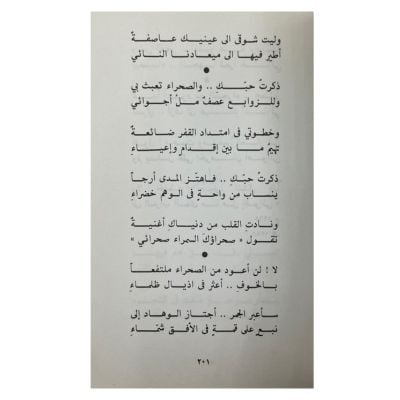 وليت شوقى الى عينيك عاصفةٌ
أطير فيها الى ميعادنا النائي
●
ذكرتُ حبّكِ .. والصحراء تعبث بي
وللزوابع عصفٌ ملُ أجوائي
وخطوتي فى امتداد القفر ضائعةٌ
تهيمُ ما بين إقدامٍ وإعياءِ
ذكرتُ حبّكِ .. فاهتز المدى أرجاً
ينساب من واحةٍ فى الوهم خضراءِ
ونادتِ القلب من دنياكِ أغنيةٌ
تقول " صحراؤكَ السمراء صحرائي "
●
لا ! لن أعود من الصحراء ملتفعاً
بالخوفِ .. أعثر فى اذيال ظلماءِ
سأعبر الجمر .. أجتاز الوهاد إلى
نبعٍ على قمةٍ فى الأفق شمّاءِ
٢٠١